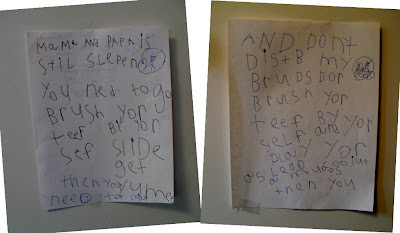 MAMA AND PAPA is
STIL SLEPEN
YOU NeD TO GO
BRUSH YOR
teeF BY YOR
SeF SLIDE
get
then you
need
AND DONT
DiSTB MY
BRUDS DOR
BRUSH YOR
teeF BY YOR
SELF AND YOR
PLAY YOR
LEGO
then you